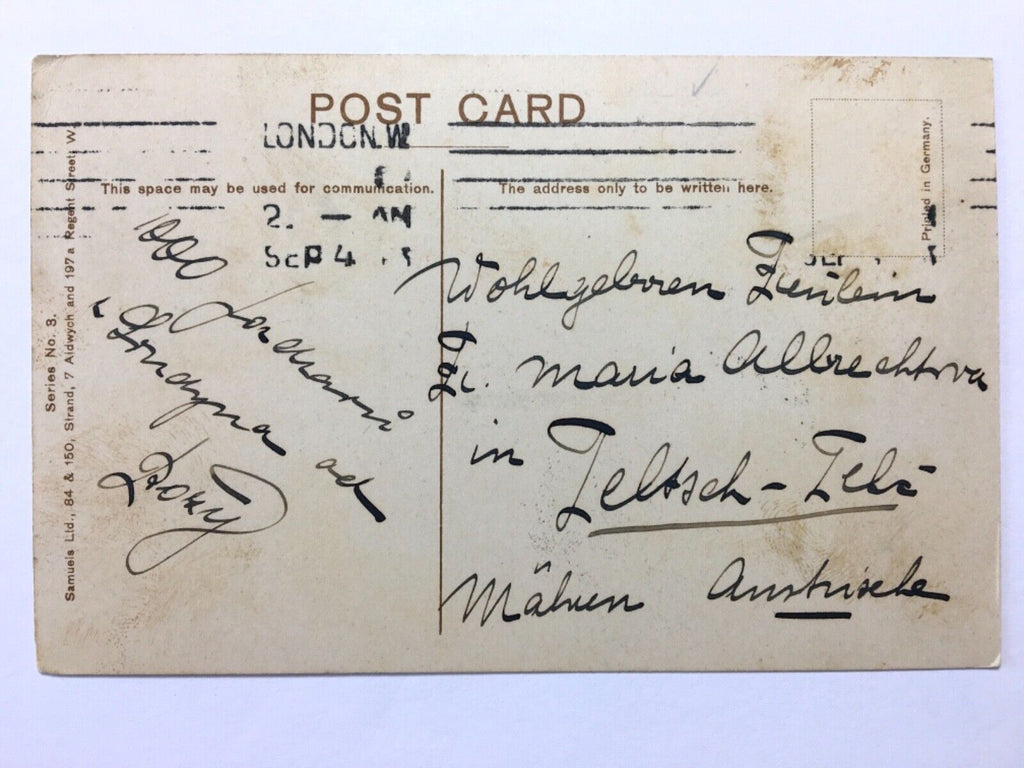 POST CARD
LONDON.W
This space may be used for communication.
The address only to be written here.
2. — AM
SEP 4
Printed in Germany.
Series No. 3.
Samuels Ltd., 84 & 150, Strand, 7 Aldwych and 197a Regent Street, W.
1000
z Londýna od
Wohlgeboren Fräulein
Fr. Maria Albrechtova
in Teltsch - Telč
Mähren Austrische